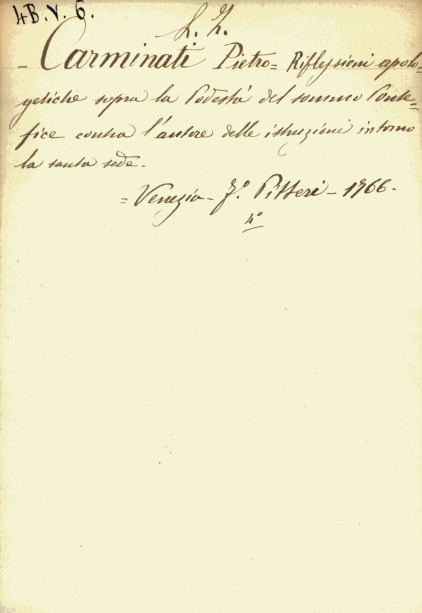 4B.V.6.
L. Z.
- Carminati Pietro = Riflessioni apolo-
getiche sopra la Podestà del sommo Ponte=
fice contra l'autore delle istruzioni intorno
la santa sede.
= Venezia - Fº. Pitteri - 1766 -
4º